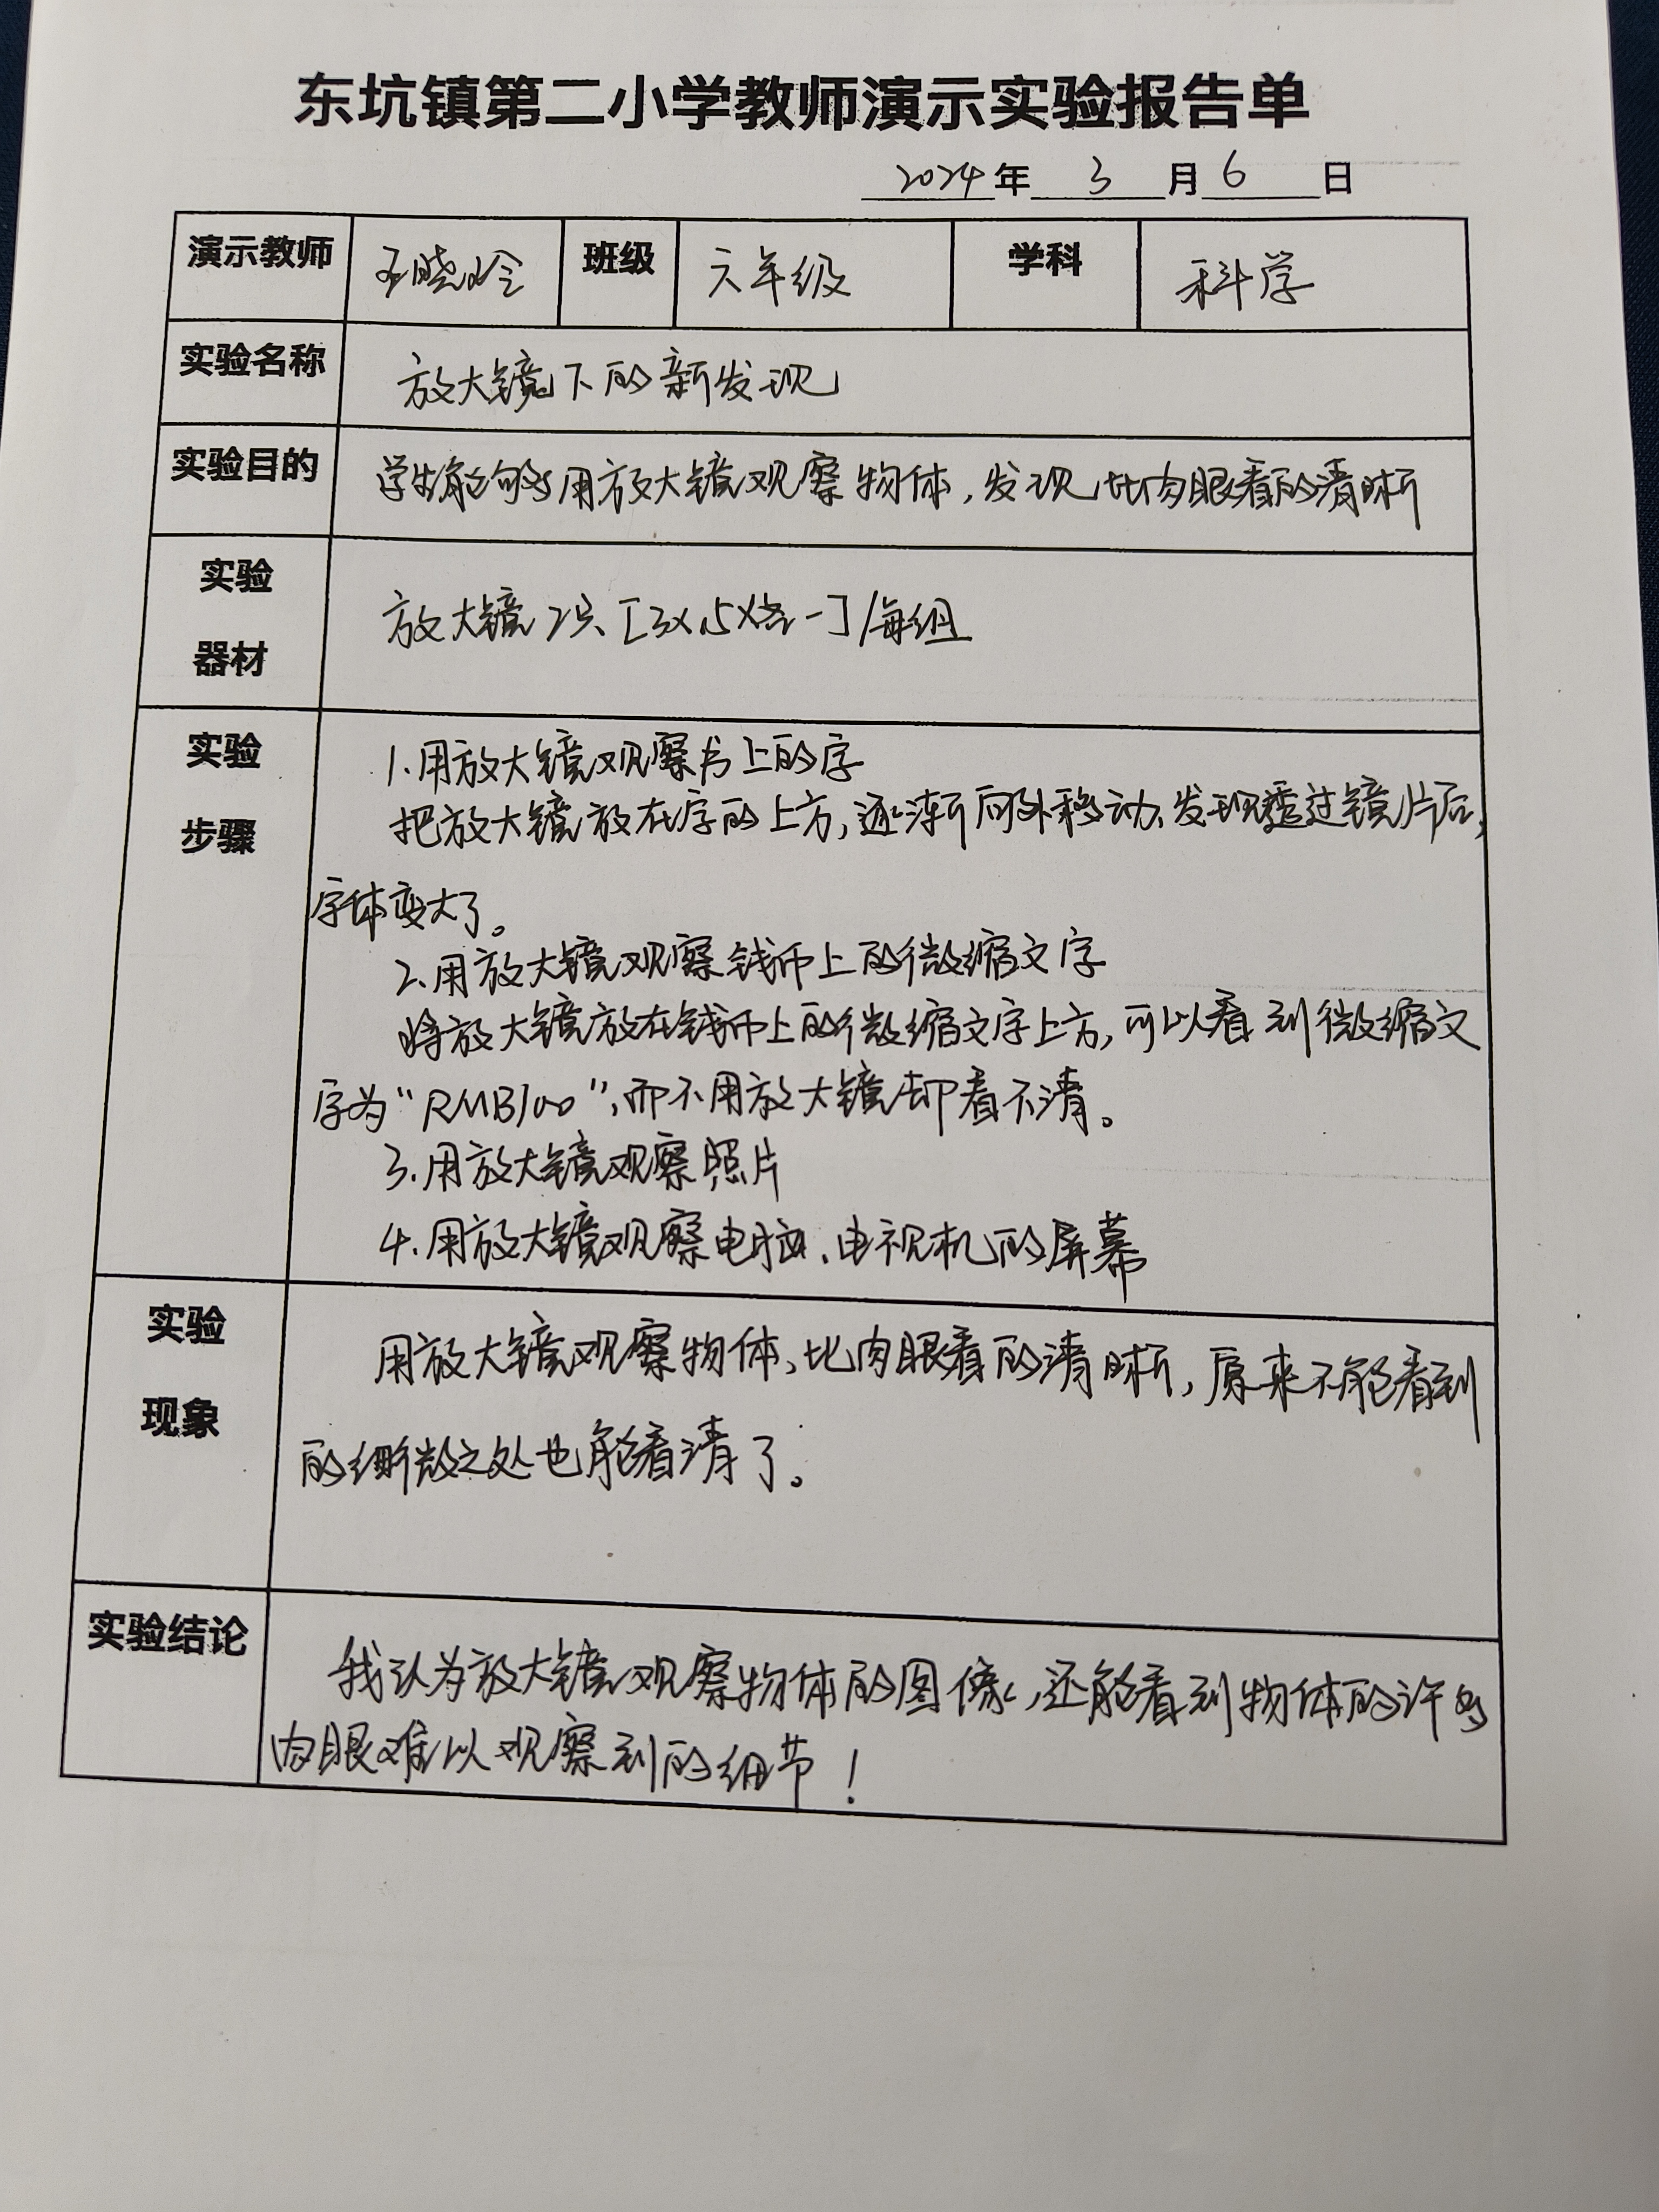 东坑镇第二小学教师演示实验报告单
2024年 3 月 6 日
演示教师 王晓玲 班级 六年级 学科 科学
实验名称 放大镜下的新发现
实验目的 学生能够用放大镜观察物体,发现比肉眼看的清晰
实验
器材
放大镜2只、[3×、5×各一]/每组
实验
步骤
1.用放大镜观察书上的字
把放大镜放在字的上方,逐渐向外移动、发现透过镜片后,
字体变大了。
2.用放大镜观察钱币上的微缩文字
将放大镜放在钱币上的微缩文字上方,可以看到微缩文
字为“RMB100”,而不用放大镜却看不清。
3.用放大镜观察照片
4.用放大镜观察电脑、电视机的屏幕
实验
现象
用放大镜观察物体、比肉眼看的清晰,原来不能看到
的细微之处也能看清了。
实验结论
我认为放大镜观察物体的图像,还能看到物体的许多
肉眼难以观察到的细节!